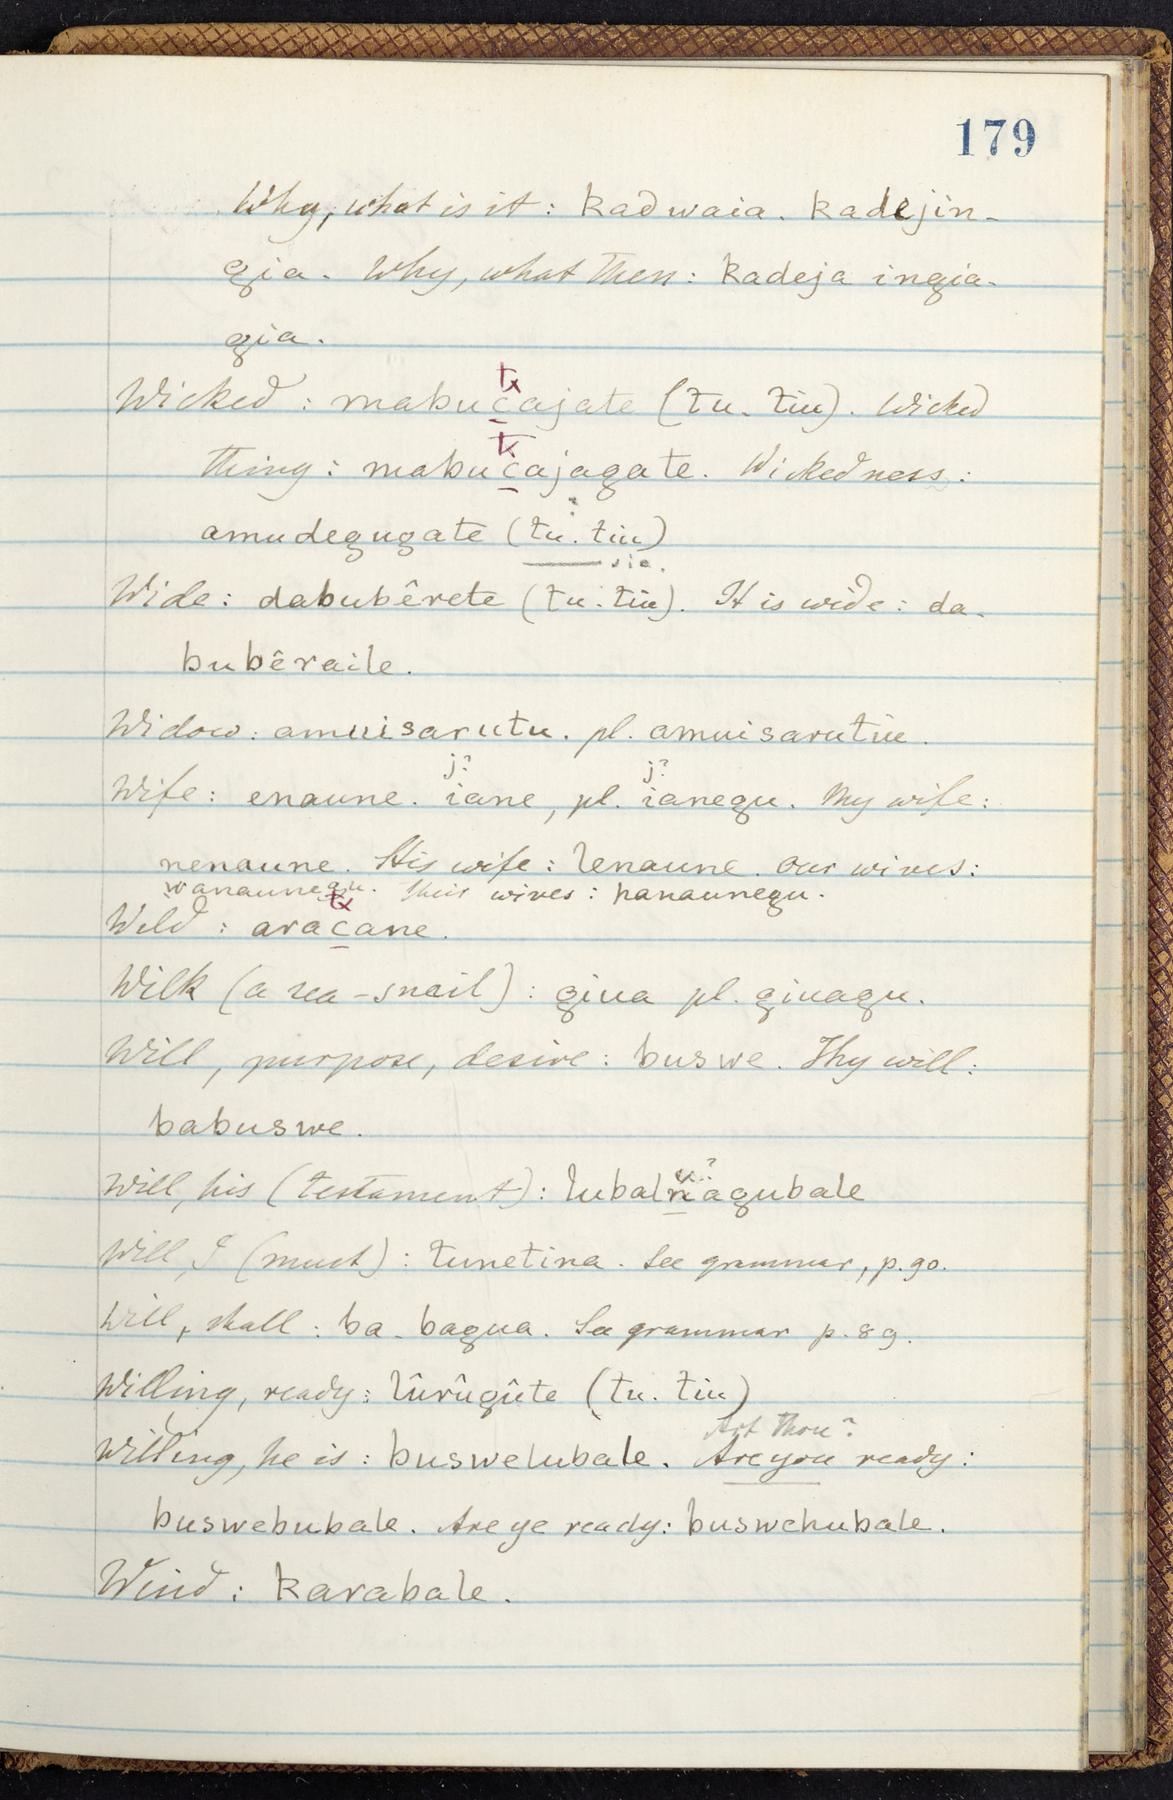 179
Why, what is it: kadwaia. kadejin-
gia. Why, what then: kadeja ingia-
gia.
tx
Wicked: mabucajate (tu. tiu). Wicked
tx
thing: mabucajagate. Wickedness:
amudegugate (tu. tiu)
sic.
Wide: dabubêrete (tu. tiu). It is wide: da-
bubêraile.
Widow: amuisarutu. pl. amuisarutiu.
j? j?
Wife: enaune. iane, pl. ianegu. My wife:
nenaune. His wife: lenaune. Our wives:
wanaunegu. Their wives: hanaunegu.
tx
Wild: aracane.
Wilk (a sea-snail): giua pl. giuagu.
Will, purpose, desire: buswe. Thy will:
babuswe.
u?
Will, his (testament): lubalnagubale
Will, I (must): tunetina. See grammar, p. 90.
Will, shall: ba. bagua. See grammar p. 89.
Willing, ready: lûrûgûte (tu. tiu)
Art thou?
Willing, he is: buswelubale. Are you ready:
buswebubale. Are ye ready: buswehubale.
Wind: karabale.